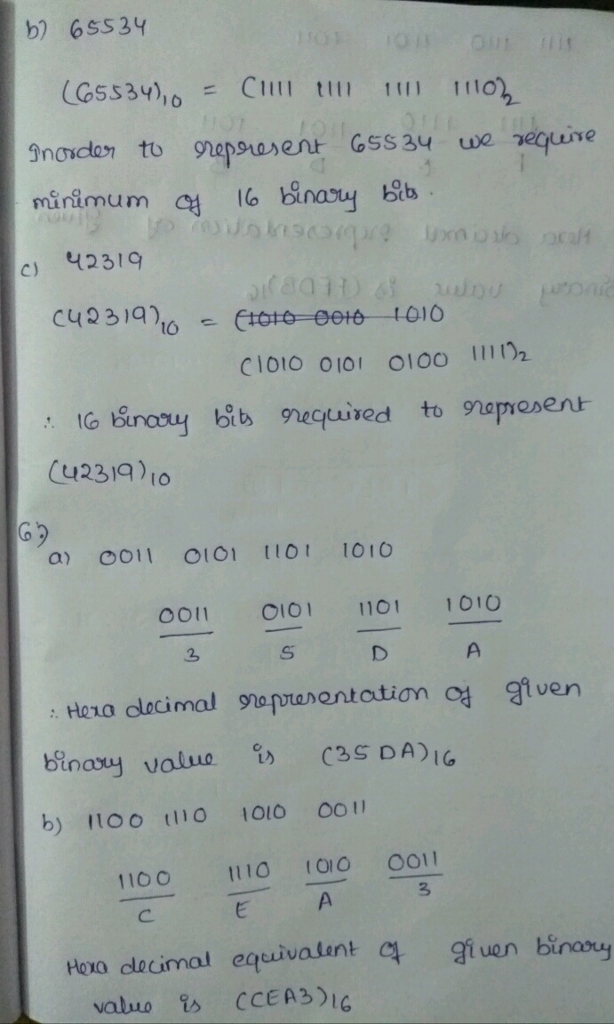 b) 65534
(65534)10 = (1111 1111 1111 1110)2
Inorder to represent 65534 we require
minimum of 16 binary bits.
c) 42319
(42319)10 = (1010 0010 1010
(1010 0101 0100 1111)2
∴ 16 binary bits required to represent
(42319)10
6)
a) 0011 0101 1101 1010
0011 0101 1101 1010
3 5 D A
∴ Hexa decimal representation of given
binary value is (35DA)16
b) 1100 1110 1010 0011
1100 1110 1010 0011
C E A 3
Hexa decimal equivalent of given binary
value is (CEA3)16